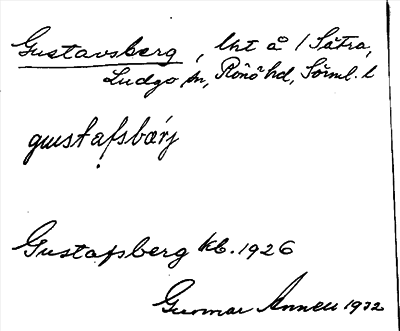 Gustavsberg, lht å / Sätra,
Ludgo sn, Rönö hd, Sörml. l
gustafsbärj
Gustafsberg kb. 1926
Gunnar Annell 1932